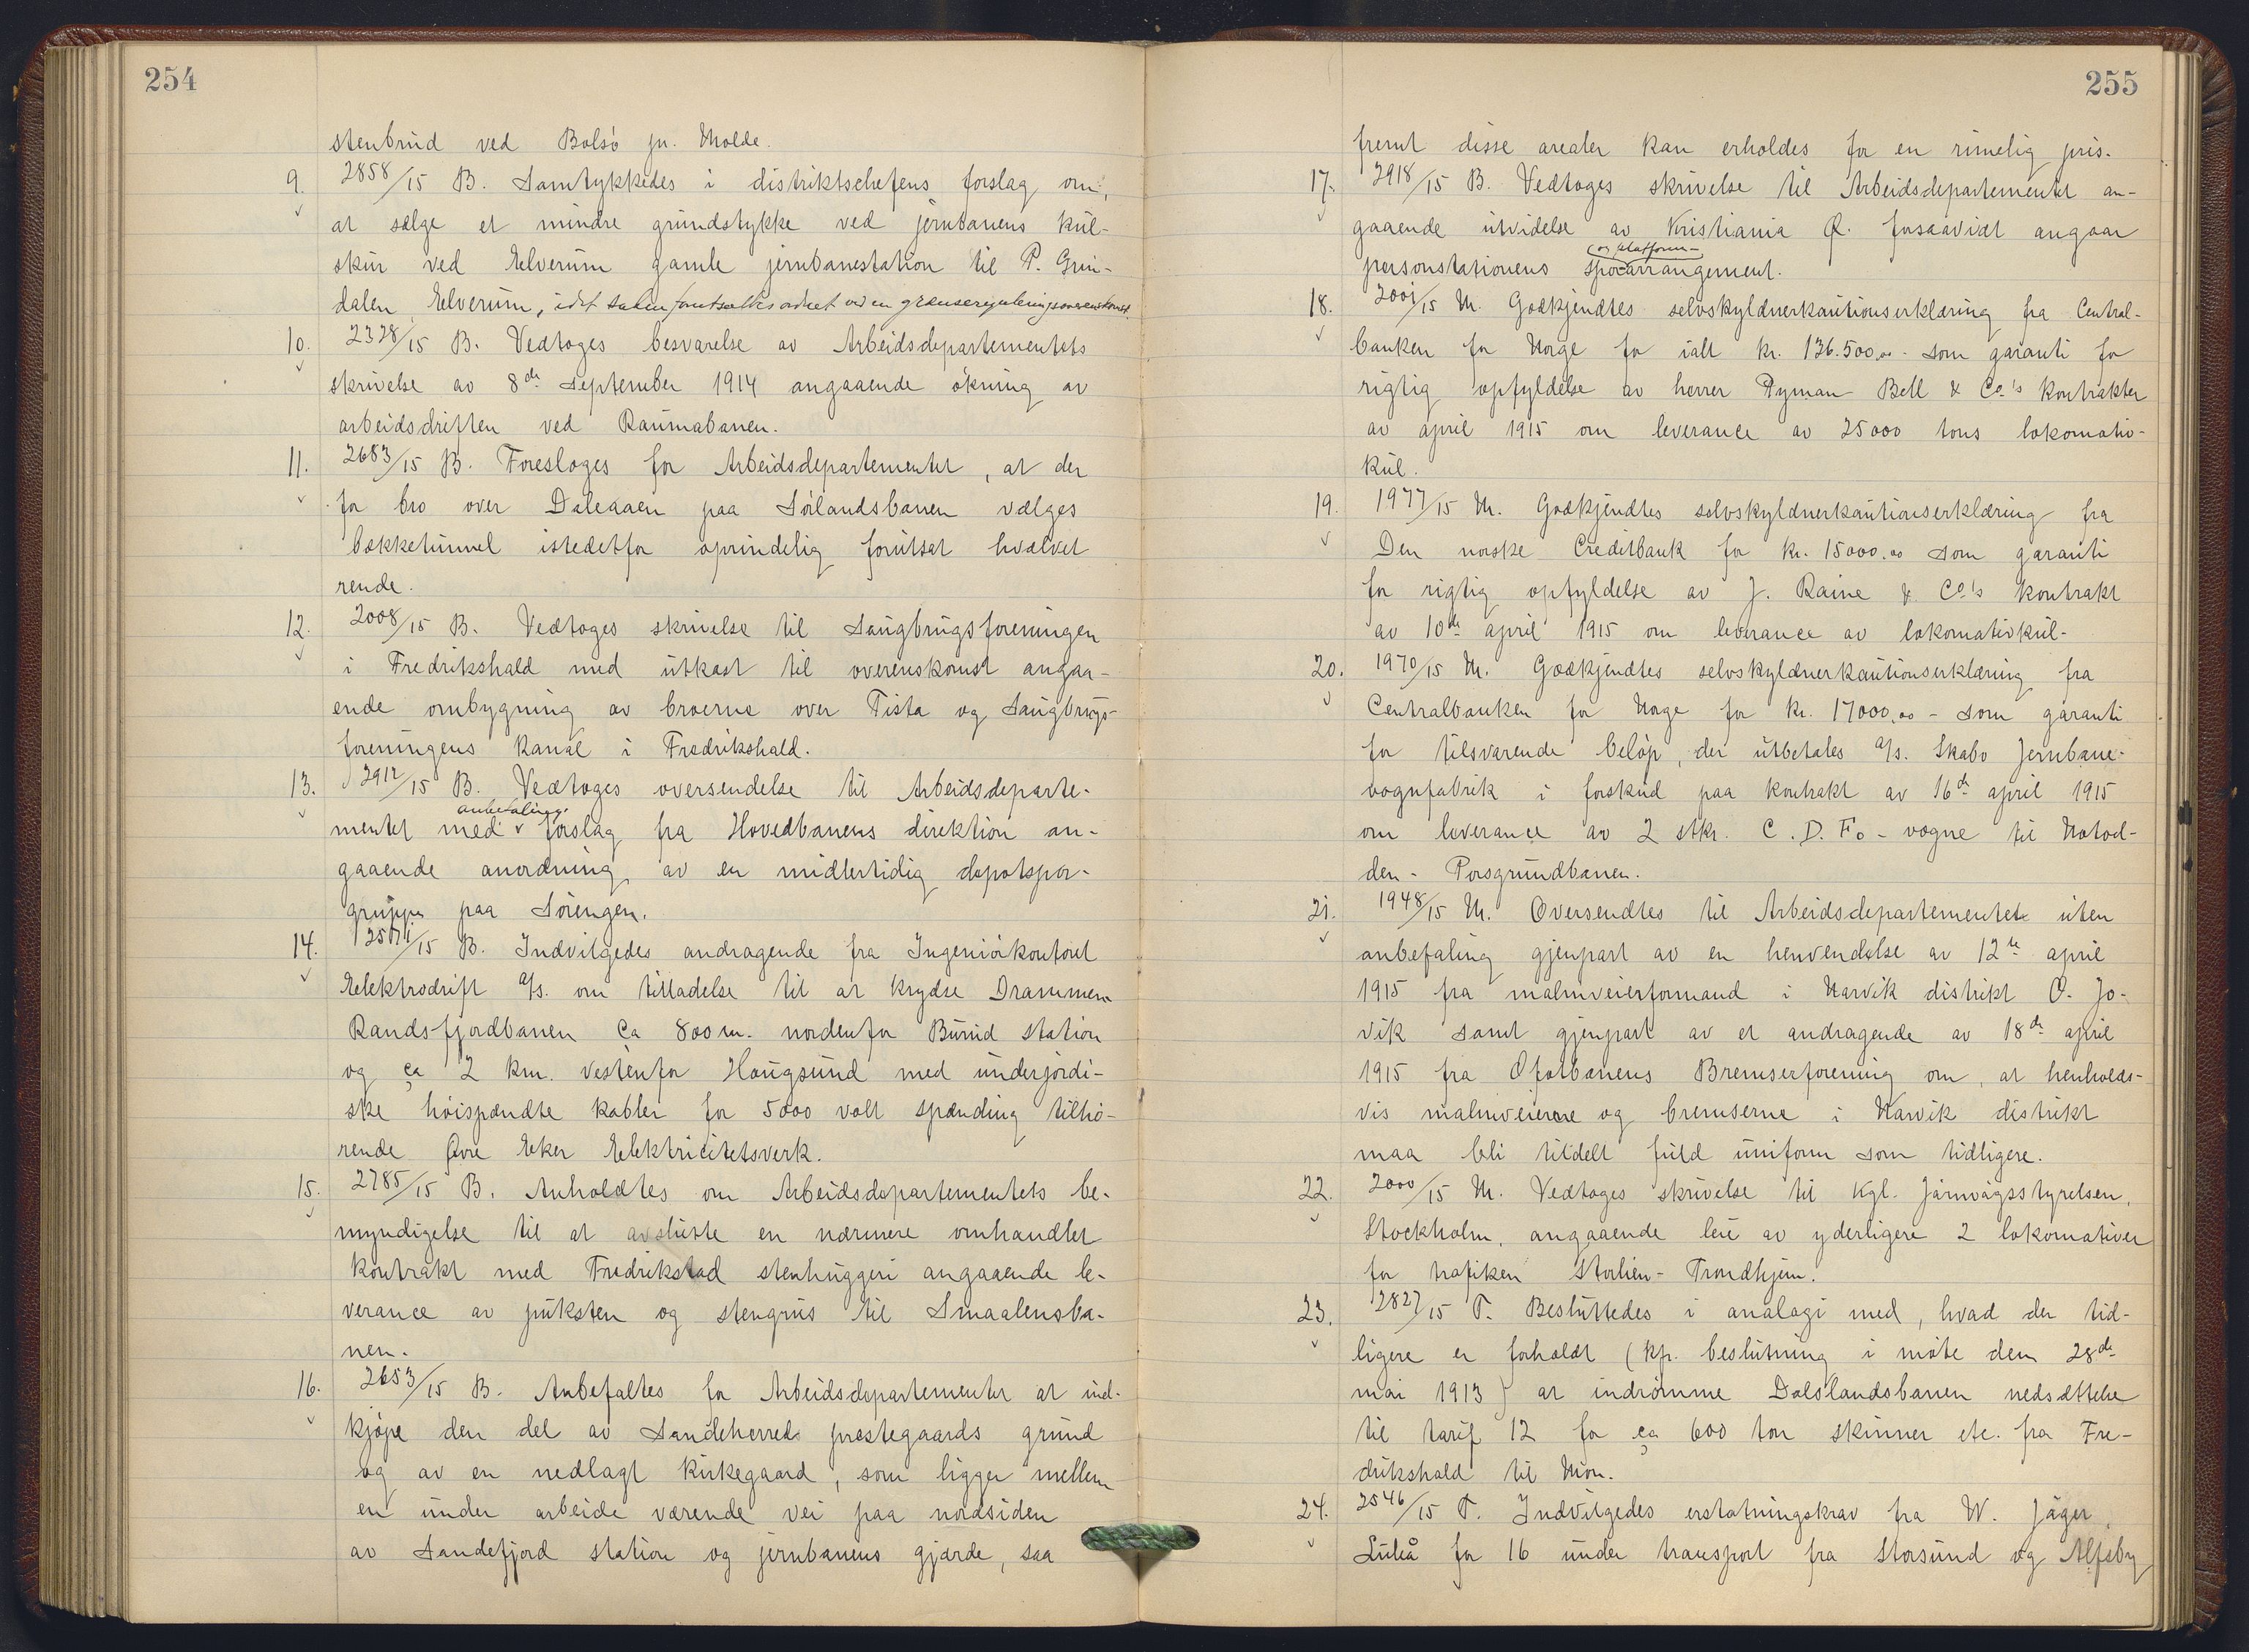 254
stenbrud ved Bolsö pr. Molde.
9. 2858/15 B. Samtykkedes i distriktschefens forslag om,
at sælge et mindre grundstykke ved jernbanens kul-
skur ved Elverum gamle jernbanestation til P. Grin-
dalen, Elverum, idet saken forutsættes ordnet ved en grænsereguleringsoverenskomst.
10. 2328/15 B. Vedtoges besvarelse av Arbeidsdepartementets
skrivelse av 8de september 1914 angaaende ökning av
arbeidsdriften ved Raumabanen.
11. 2683/15 B. Foresloges for Arbeidsdepartementet, at der
for bro over Daleaaen paa Sörlandsbanen vælges
bækketunnel istedetfor oprindelig forutsat hvælvet
rende.
12. 2008/15 B. Vedtoges skrivelse til Saugbrugsforeningen
i Fredrikshald med utkast til overenskomst angaa-
ende ombygning av broerne over Tista og Saugbrugs-
foreningens kanal i Fredrikshald.
13. 2912/15 B. Vedtoges oversendelse til Arbeidsdeparte-
anbefaling
mentet med v forslag fra Hovedbanens direktion an-
gaaende anordning av en midlertidig depotspor-
gruppe paa Sörengen.
14. 2571/15 B. Indvilgedes andragende fra Ingeniörkontoret
Elektrodrift A/s. om tilladelse til at krydse Drammen
Randsfjordbanen ca 800 m. nordenfor Burud station
og ca 2 km. vestenfor Hougsund med underjordi-
ske höispændte kabler for 5000 volt spænding tilhö-
rende Övre Eker Elektricitetsverk.
15. 2785/15 B. Anholdtes om Arbeidsdepartementets be-
myndigelse til at avslutte en nærmere omhandlet
kontrakt med Fredrikstad stenhuggeri angaaende le-
verance av puksten og stengrus til Smaalensba-
nen.
16. 2653/15 B. Anbefaltes for Arbeidsdepartementet at ind-
kjöpe den del av Sandeherred prestegaards grund
og av en nedlagt kirkegaard, som ligger mellem
en under arbeide værende vei paa nordsiden
av Sandefjord station og jernbanens gjærde, saa
255
fremt disse arealer kan erholdes for en rimelig pris.
17. 2918/15 B. Vedtoges skrivelse til Arbeidsdepartementet an-
gaaende utvidelse av Kristiania Ø. forsaavidt angaar
og platform-
personstationens sporarrangement.
18. 2001/15 M. Godkjendtes selvskyldnerkautionserklæring fra Central-
banken for Norge for ialt kr. 136.500,00 - som garanti for
rigtig opfyldelse av herrer Pyman Bell & Co's kontrakter
av april 1915 om leverance av 25000 tons lokomotiv-
kul.
19. 1977/15 M. Godkjendtes selvskyldnerkautionserklæring fra
Den norske Creditbank for kr. 15000.00 som garanti
for rigtig opfyldelse av J. Raine & Co's kontrakt
av 10de april 1915 om leverance av lokomotivkul.
20. 1970/15 M. Godkjendtes selvskyldnerkautionserklæring fra
Centralbanken for Norge for kr. 17000,00 - som garanti
for tilsvarende belöp, der utbetales A/s. Skabo Jernbane-
vognfabrik i forskud paa kontrakt av 16de april 1915
om leverance av 2 stkr. C. D. Fo - vogne til Notod-
den - Porsgrundbanen.
21. 1948/15 M. Oversendtes til Arbeidsdepartementet uten
anbefaling gjenpart av en henvendelse av 12te april
1915 fra malmveierformand i Narvik distrikt O. Jo-
vik samt gjenpart av et andragende av 18de april
1915 fra Ofotbanens Bremserforening om, at henholds-
vis malmveierne og bremserne i Narvik distrikt
maa bli tildelt fuld uniform som tidligere.
22. 2000/15 M. Vedtoges skrivelse til Kgl. Järnvägsstyrelsen,
Stockholm, angaaende leie av yderligere 2 lokomotiver
for trafiken Storlien - Trondhjem.
23. 2827/15 T. Besluttedes i analogi med, hvad der tid-
ligere er forholdt (kfr. beslutning i möte den 28de
mai 1913) at indrömme Dalslandsbanen nedsættelse
til tarif 12 for ca 600 ton skinner etc. fra Fre-
drikshald til Mon.
24. 2546/15 T. Indvilgedes erstatningskrav fra W. Jäger,
Luleå for 16 under transport fra Storsund og Alfsby